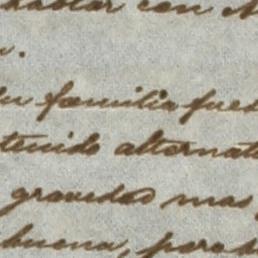 hablar con
familia fue
tenido alternat
gravedad mas
buena, pero